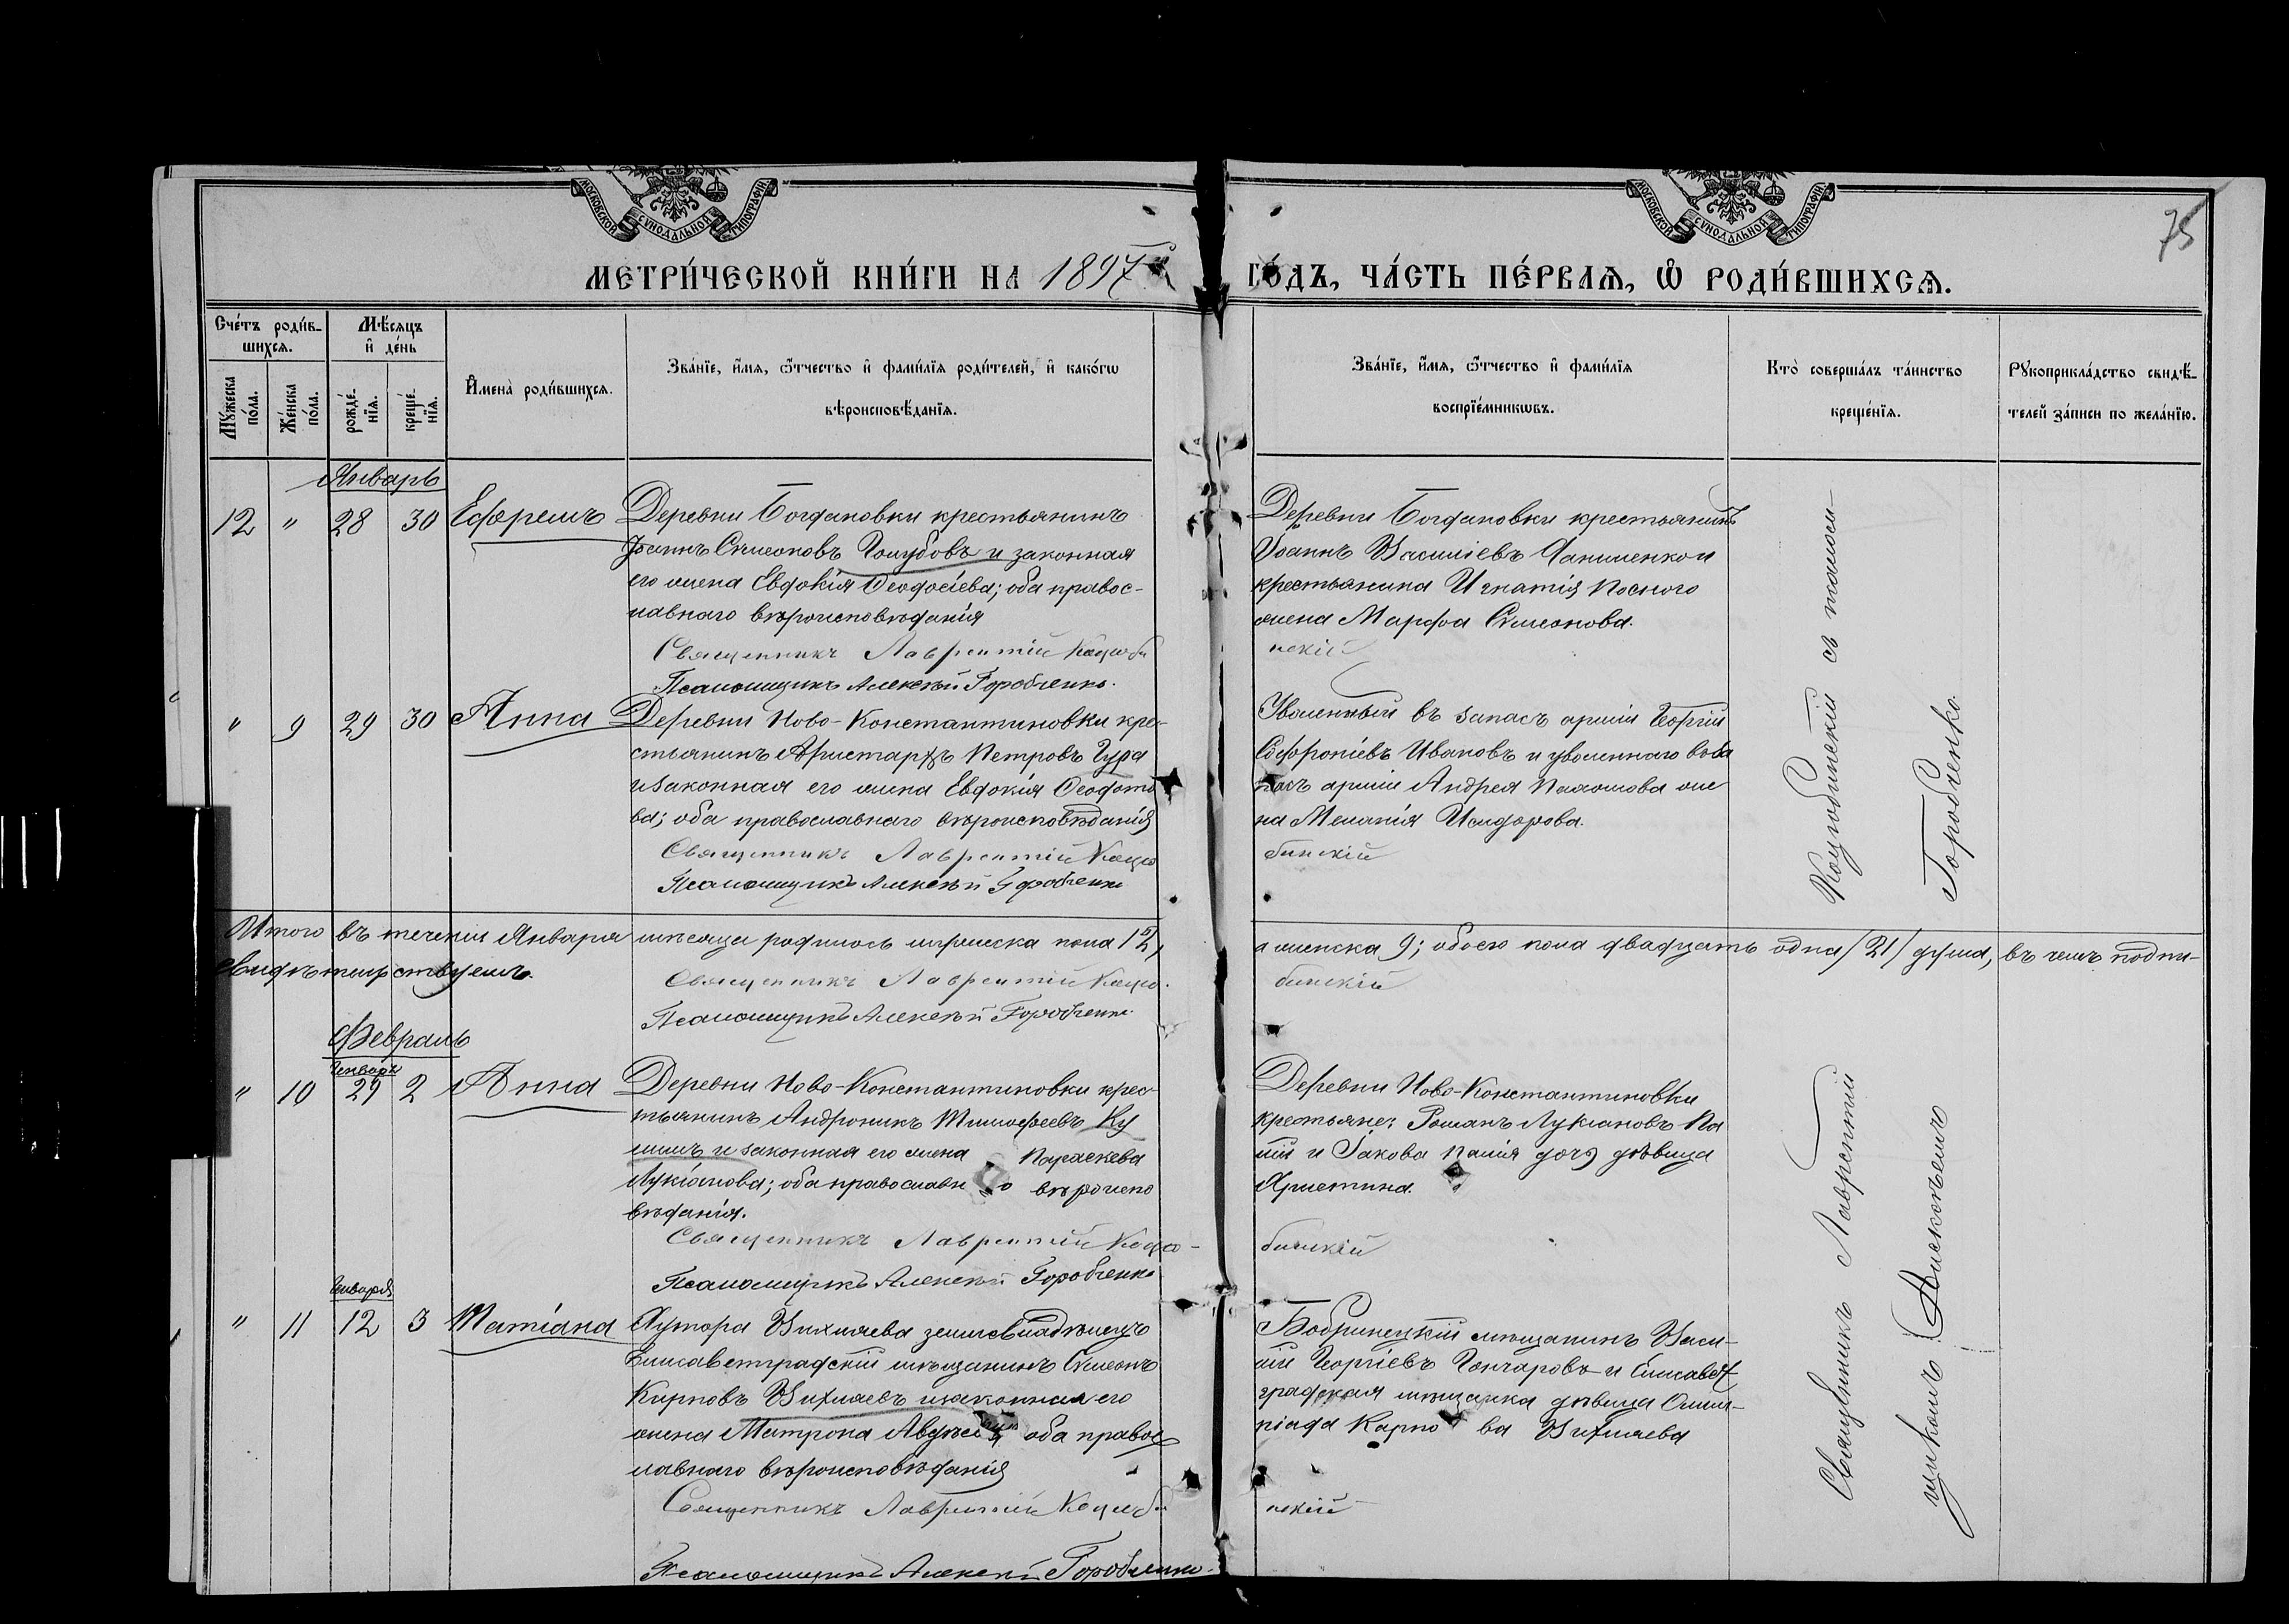 МОСКОВСКОЙ СУНОДАЛЬНОЙ ТИПОГРАФІИ
МОСКОВСКОЙ СУНОДАЛЬНОЙ ТИПОГРАФІИ
75
МЕТРИ́ЧЕСКОЙ КНИ́ГИ НА 1897й ГО́ДЪ, ЧА́СТЬ ПЕ́РВАѦ, Ѡ҆ РОДИ́ВШИХСѦ.
Сче́тъ роди́в-
шихсѧ.
Мѣ́сѧцъ
и҆ де́нь
Мꙋ́жеска
по́ла.
Же́нска
по́ла.
рожде́-
нїѧ.
креще́-
нїѧ.
И҆мена̀ роди́вшихсѧ.
Зва́нїе, и҆́мѧ, ѻ҆́тчество и҆ фами́лїѧ роди́телей, и҆ како́гѡ
вѣроисповѣ́данїѧ.
Зва́нїе, и҆́мѧ, ѻ҆́тчество и҆ фами́лїѧ
воспрїе́мникѡвъ.
Кто̀ соверша́лъ та́инство
креще́нїѧ.
Рꙋкоприкла́дство свидѣ́-
телей за́писи по жела́нїю.
Январь
12 " 28 30 Ефремъ
Деревни Богдановки крестьянинъ
Іоаннъ Симеоновъ Голубовъ и законная
его жена Евдокія Ѳеодосіева; оба правос-
лавнаго вѣроисповѣданія
Священникъ Лаврентій Коцюби
Псаломщикъ Алексѣй Горобченко.
Деревни Богдановки крестьянинъ
Іоаннъ Василіевъ и
крестьянина Игнатія Посного
жена Марфа Симеонова.
нскій
" 9 29 30 Анна
Деревни Ново-Константиновки кре-
стьянинъ Аристархъ Петровъ Гура
и законная его жена Евдокія Ѳеодото
ва; оба православнаго вѣроисповѣданія
Священникъ Лаврентій Коцю
Псаломщикъ Алексѣй Горобченко
Уволенный въ запасъ арміи Георгій
Софроніевъ Ивановъ и уволеннаго въ за
пасъ арміи Андрея жe
на Меланія Исидорова.
бинскій
Коцюбинскій съ псалом-
Горобченко
Итого въ теченіи Января мѣсяца родилось мужеска пола 12,
а женска 9; обоего пола двадцать одна /21/ душа, въ чемъ подпи-
свидѣтельствуемъ.
Священникъ Лаврентій Коцю-
бинскій
Псаломщикъ Алексѣй Горобченко
Февраль
Январь
" 10 29 2 Анна
Деревни Ново-Константиновки крес-
тьянинъ Андроникъ Тимофеевъ Ку
шнъ и законная его жена Параскева
Лукіанова; оба православнаго вѣроиспо
вѣданія.
Священникъ Лаврентій Коцю-
Псаломщикъ Алексѣй Горобченко
Деревни Ново-Константиновки
крестьяне: Романъ Лукіановъ Па
лій и Іакова Палія дочь дѣвица
Христина.
бинскій
Января
" 11 12 3 Татіана
Хутора Вихляева землевладѣлецъ
Елисаветградскій мѣщанинъ Симеонъ
Карповъ Вихляевъ и законная его
жена Матрона оба правос
лавнаго вѣроисповѣданія
Священникъ Лаврентій Коцюби
Псаломщикъ Алексѣй Горобченко.
Бобринецкій мѣщанинъ Васи-
лій Георгіевъ Гончаровъ и Елисавет
градская мѣщанка дѣвица Олим-
піада Карпова Вихляева
нскій
Священникъ Лаврентій
щикомъ Алексѣемъ